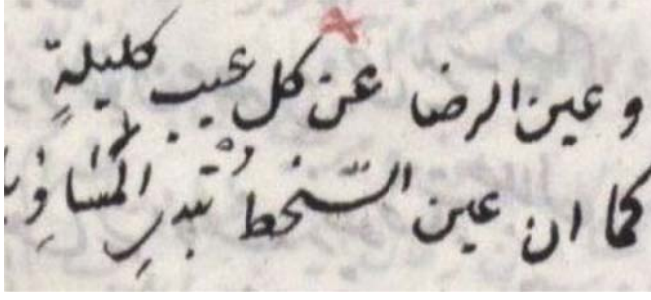 وعين الرضا عن كل عيب كليلةٍ
كما ان عين السّخط تُبدِ المَسَاوِيا